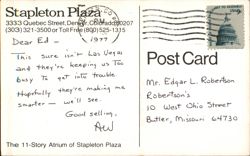 Stapleton Plaza
3333 Quebec Street, Denver, Colorado 80207
(303) 321-3500 or Toll Free (800) 525-1315
1977
Dear Ed -
This sure isn't Las Vegas
and they're keeping us too
busy to get into trouble
Hopefully they're making me
smarter - we'll see.
Good selling.
The 11-Story Atrium of Stapleton Plaza
Post Card
Mr. Edgar L. Robertson
Robertson's
10 West Ohio Street
Butler, Missouri 64730